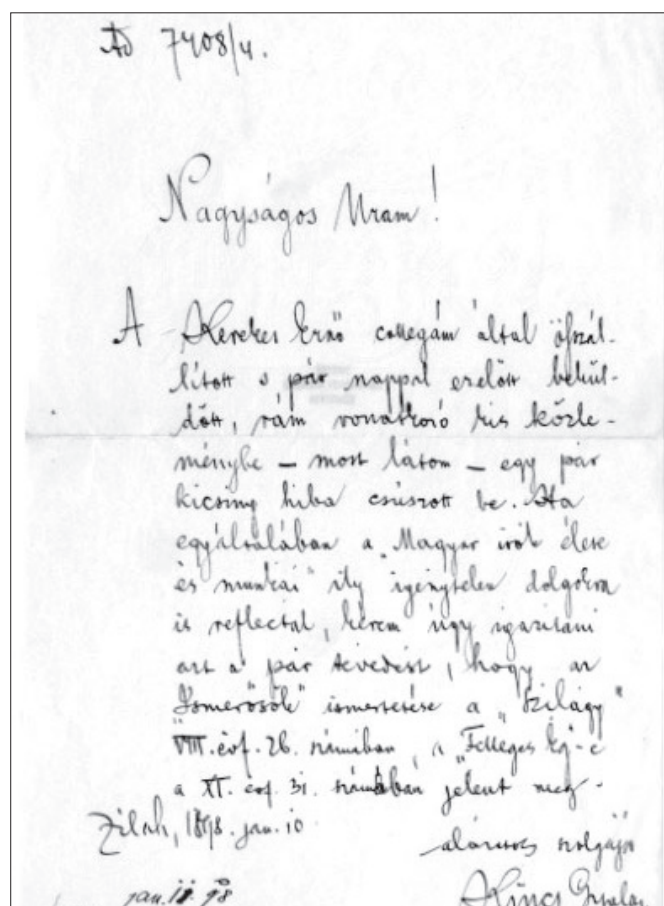 Ad 7408/4.
Nagyságos Uram!
A Kerekes Ernő collegám által öszál-
lított s pár nappal ezelőtt bekül-
dött, rám vonatkozó kis közle-
ménybe – most látom – egy pár
kicsiny hiba csúszott be. Ha
egyáltalában a „Magyar irók élete
és munkái" ily igénytelen dolgokra
is reflectál, kérem úgy igazitani
azt a pár tévedést, hogy az
„Ismerősök" ismertetése a „Szilágy"
VIII. évf. 26. számában, a „Felleges Ég"-é
a XI. évf. 31. számában jelent meg.
Zilah, 1898. jan. 10
alázatos szolgája
Kincs Gyula
jan. 12. 98